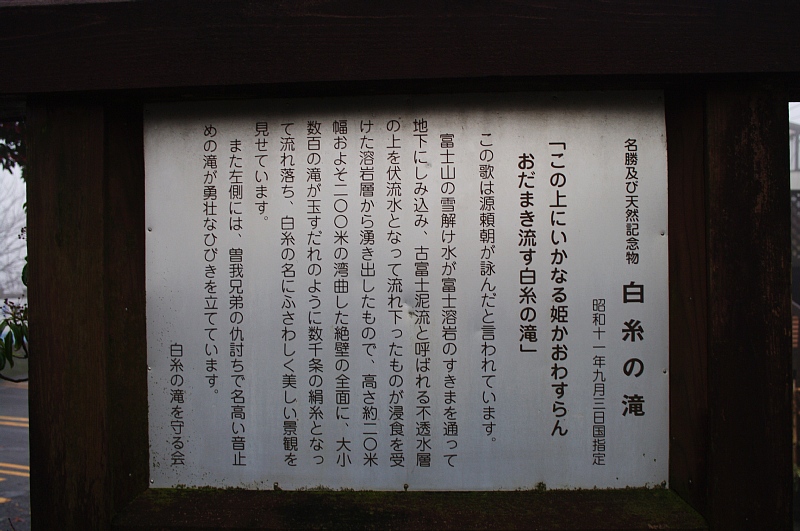 名勝及び天然記念物 白糸の滝
昭和十一年九月三日国指定
「この上にいかなる姫かおわすらん
おだまき流す白糸の滝」
この歌は源頼朝が詠んだと言われています。
富士山の雪解け水が富士溶岩のすきまを通って
地下にしみ込み、古富士泥流と呼ばれる不透水層
の上を伏流水となって流れ下ったものが浸食を受
けた溶岩層から湧き出したもので、高さ約二〇米
幅およそ二〇〇米の湾曲した絶壁の全面に、大小
数百の滝が玉すだれのように数千条の絹糸となっ
て流れ落ち、白糸の名にふさわしく美しい景観を
見せています。
また左側には、曽我兄弟の仇討ちで名高い音止
めの滝が勇壮なひびきを立てています。
白糸の滝を守る会